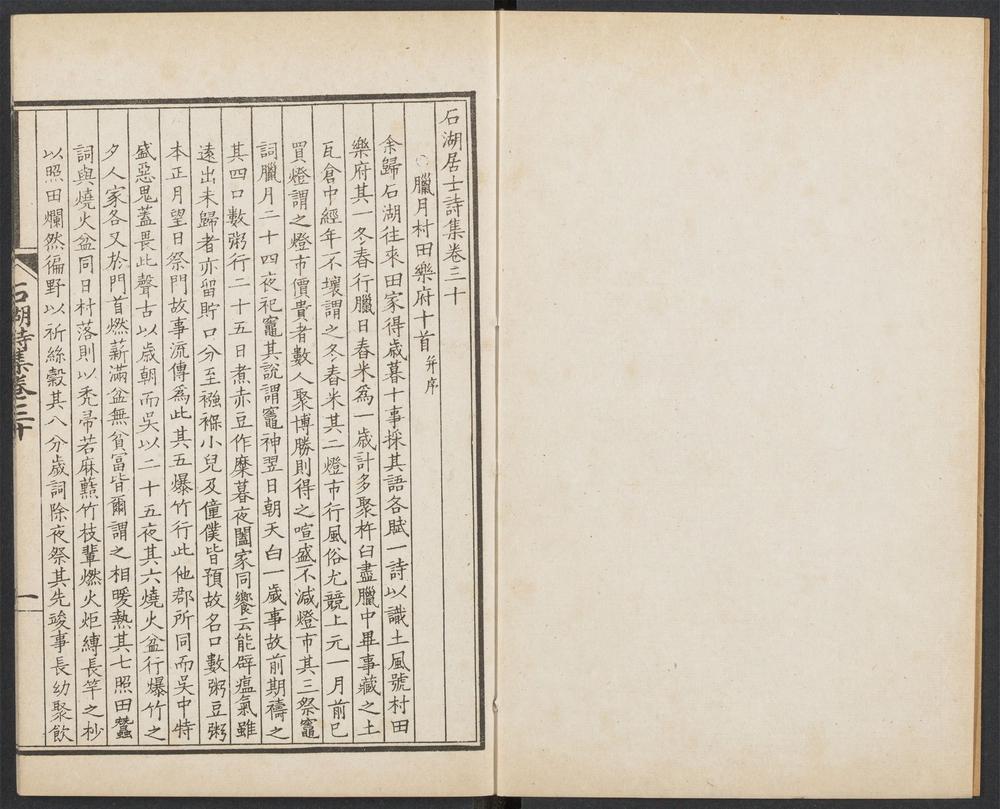 石湖居士詩集卷三十
臘月村田樂府十首并序
余歸石湖往來田家得歲暮十事採其語各賦一詩以識土風號村田
樂府其一冬舂行臘日舂米為一歲計多聚杵臼盡臘中畢事藏之土
瓦倉中經年不壞謂之冬舂米其二燈市行風俗尤競上元一月前已
買燈謂之燈市價貴者數人聚博勝則得之喧盛不減燈市其三祭竈
詞臘月二十四夜祀竈其說謂竈神翌日朝天白一歲事故前期禱之
其四口數粥行二十五日煮赤豆作糜暮夜闔家同饗云能辟瘟氣雖
遠出未歸者亦留貯口分至襁褓小兒及僮僕皆預故名口數粥豆粥
本正月望日祭門故事流傳為此其五爆竹行此他郡所同而吳中特
盛惡鬼蓋畏此聲古以歲朝而吳以二十五夜其六燒火盆行爆竹之
夕人家各又於門首燃薪滿盆無貧富皆爾謂之相暖熱其七照田蠶
詞與燒火盆同日村落則以禿帚若麻藍竹枝輩燃火炬縛長竿之杪
以照田爛然徧野以祈絲穀其八分歲詞除夜祭其先竣事長幼聚飲
石湖詩集卷三十
一